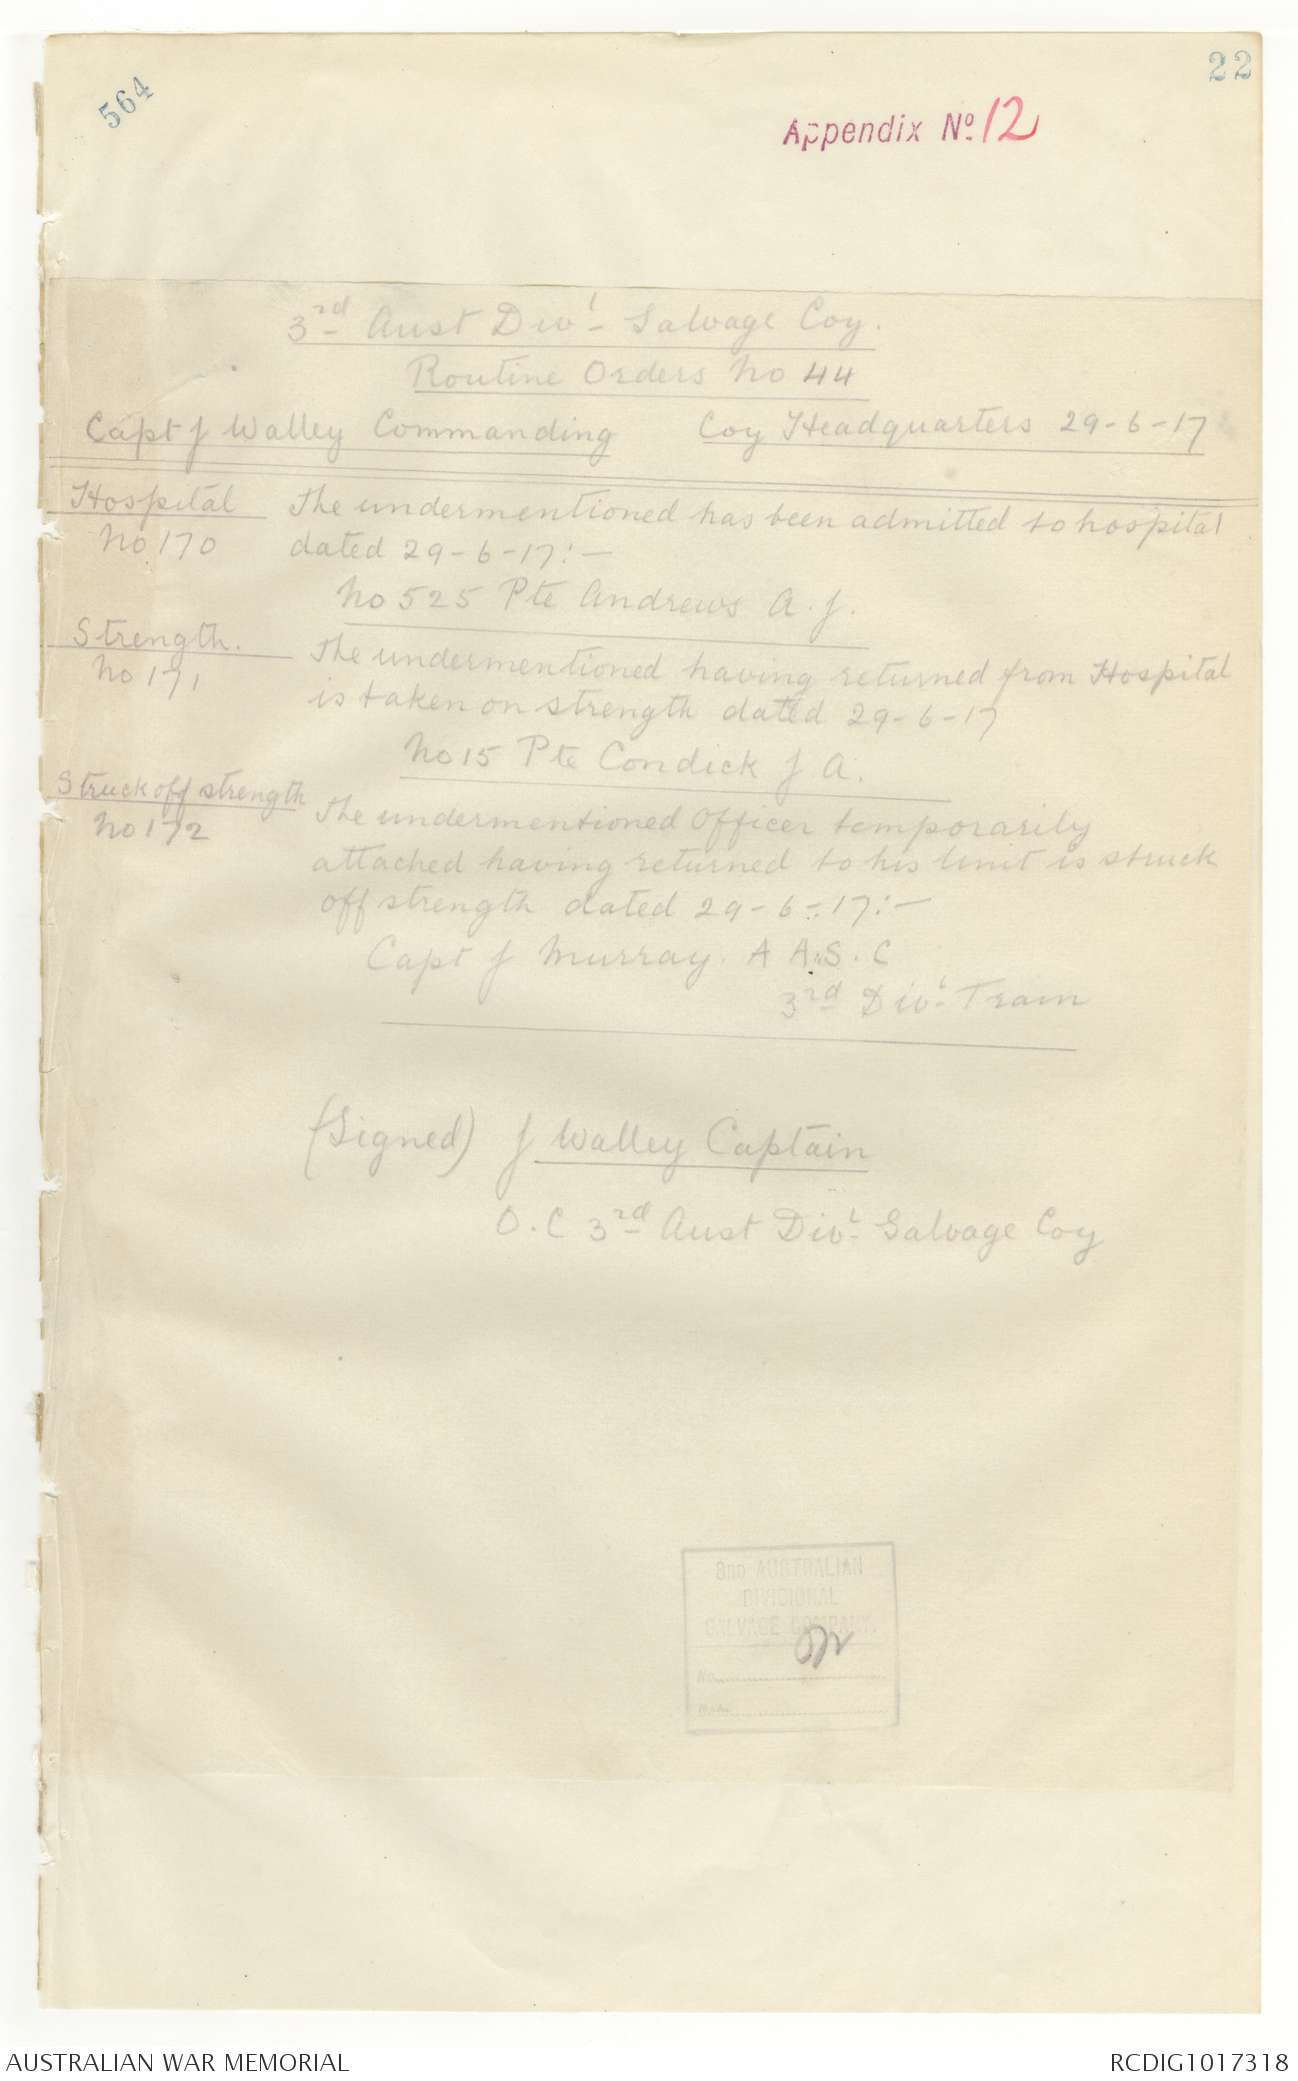 564
22
Appendix No 12
3rd Aust Divl Salvage Coy.
Routine Orders No 44
Capt J Walley Commanding Coy Headquarters 29-6-17
Hospital The undermentioned has been admitted to hospital
No 170 dated 29-6-17:-
No 525 Pte Andrews A. J.
Strength. The undermentioned having returned from Hospital
No 171 is taken on strength dated 29-6-17
No 15 Pte Condick J A.
Struck off strength The undermentioned Officer temporarily
No 172 attached having returned to his Unit is struck
off strength dated 29-6-17:-
Capt J Murray. A A.S.C
3rd Divl Train
(Signed) J Walley Captain
O.C 3rd Aust Divl Salvage Coy
3RD AUSTRALIAN
DIVISIONAL
SALVAGE COMPANY.
No.
Date
AUSTRALIAN WAR MEMORIAL RCDIG1017318